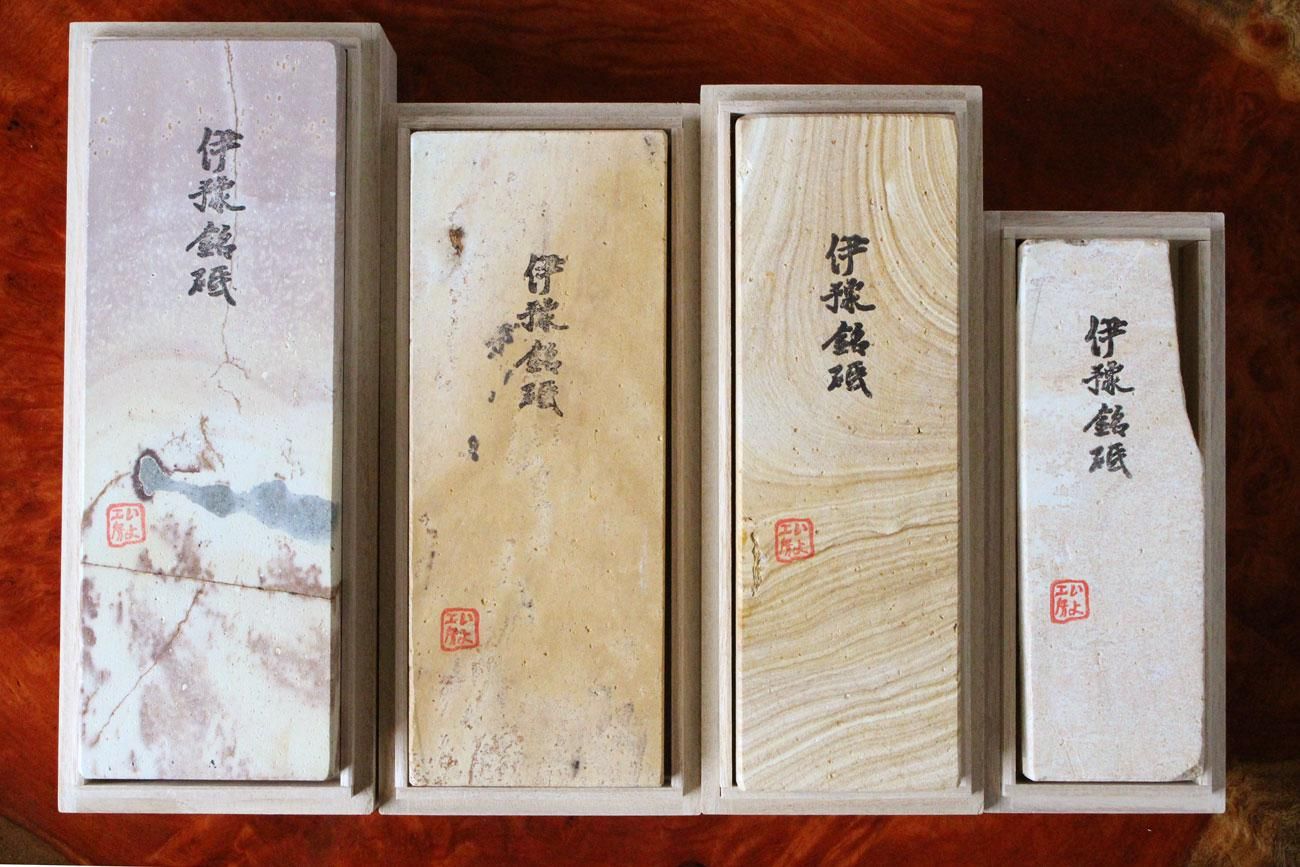 伊豫銘砥
いよ
工房
伊豫銘砥
いよ
工房
伊豫銘砥
いよ
工房
伊豫銘砥
いよ
工房